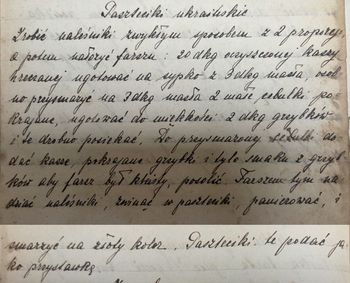 Paszteciki ukraińskie
Zrobić naleśniki zwykłym sposobem z 2 proporcji,
a potem nałożyć farszu: 20 dkg oczyszczonej kaszy
hreczanej ugotować na sypko z 3 dkg masła, osob-
no przysmażyć na 3 dkg masła 2 małe cebulki po-
krajane, ugotować do miękkości 2 dkg grzybków
i te drobno posiekać. Do przysmażonej cebulki do-
dać kaszę pokrajane grzybki i tyle smaku z grzyb-
ków aby farsz był tłusty, posolić. Farszem tym na-
dziać naleśniki, zwinąć w paszteciki, panierować, i
smażyć na złoty kolor. Paszteciki te podać ja-
ko przystawkę